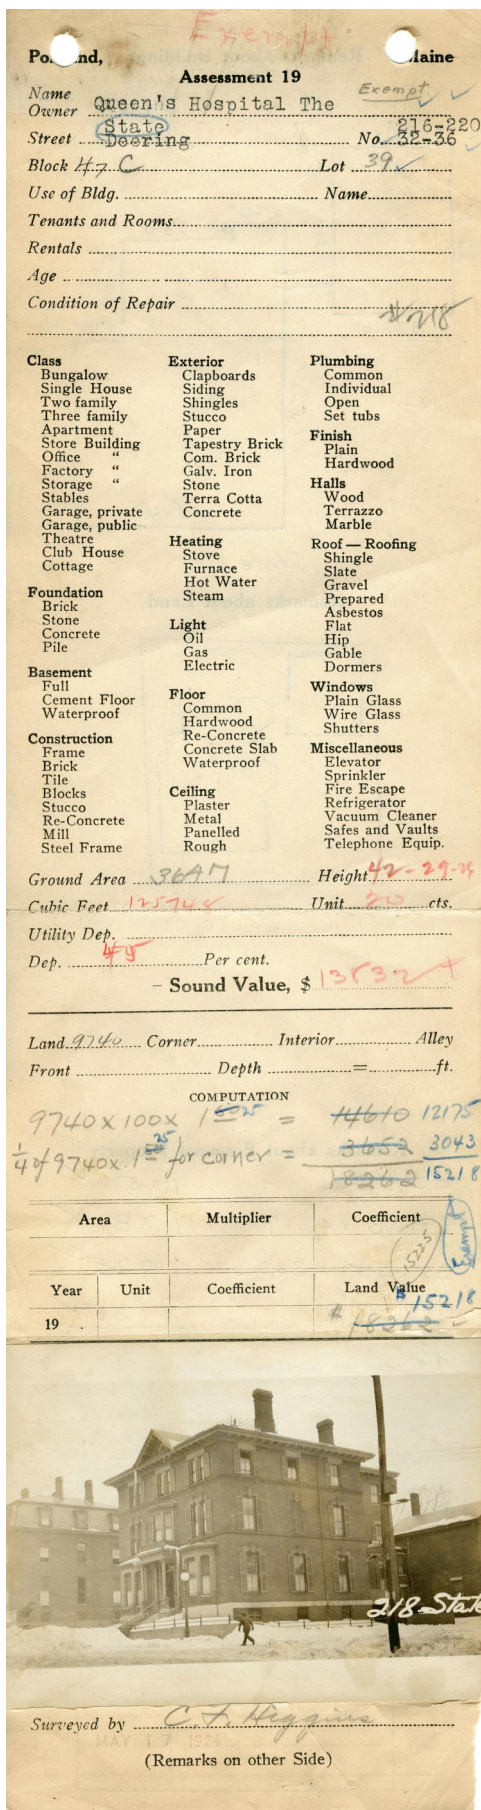 Exempt
Portland, Maine
Assessment 19
Name
Owner Queen's Hospital The Exempt.
State 216-220
Street Deering No. 32-36
Block 47 C Lot 39
Use of Bldg. Name
Tenants and Rooms
Rentals
Age
Condition of Repair
#218
Class
Bungalow
Single House
Two family
Three family
Apartment
Store Building
Office "
Factory "
Storage "
Stables
Garage, private
Garage, public
Theatre
Club House
Cottage
Foundation
Brick
Stone
Concrete
Pile
Basement
Full
Cement Floor
Waterproof
Construction
Frame
Brick
Tile
Blocks
Stucco
Re-Concrete
Mill
Steel Frame
Exterior
Clapboards
Siding
Shingles
Stucco
Paper
Tapestry Brick
Com. Brick
Galv. Iron
Stone
Terra Cotta
Concrete
Heating
Stove
Furnace
Hot Water
Steam
Light
Oil
Gas
Electric
Floor
Common
Hardwood
Re-Concrete
Concrete Slab
Waterproof
Ceiling
Plaster
Metal
Panelled
Rough
Plumbing
Common
Individual
Open
Set tubs
Finish
Plain
Hardwood
Halls
Wood
Terrazzo
Marble
Roof — Roofing
Shingle
Slate
Gravel
Prepared
Asbestos
Flat
Hip
Gable
Dormers
Windows
Plain Glass
Wire Glass
Shutters
Miscellaneous
Elevator
Sprinkler
Fire Escape
Refrigerator
Vacuum Cleaner
Safes and Vaults
Telephone Equip.
Ground Area Height 42-29-24
Cubic Feet 125748 Unit 20 cts.
Utility Dep.
Dep. 45 Per cent.
— Sound Value, $ 13832
Land 9740 Corner Interior Alley
Front Depth = ft.
COMPUTATION
9740 x 100 x 1 25 = 14610 12175
1/4 of 9740 x 1 25 for corner = 3652 3043
18262 15218
Area Multiplier Coefficient
15225
Exempt
Year Unit Coefficient Land Value
$ 15218
19 . # 18262
218-State
Surveyed by C. F. Higgins
MAY 17 1924
(Remarks on other Side)